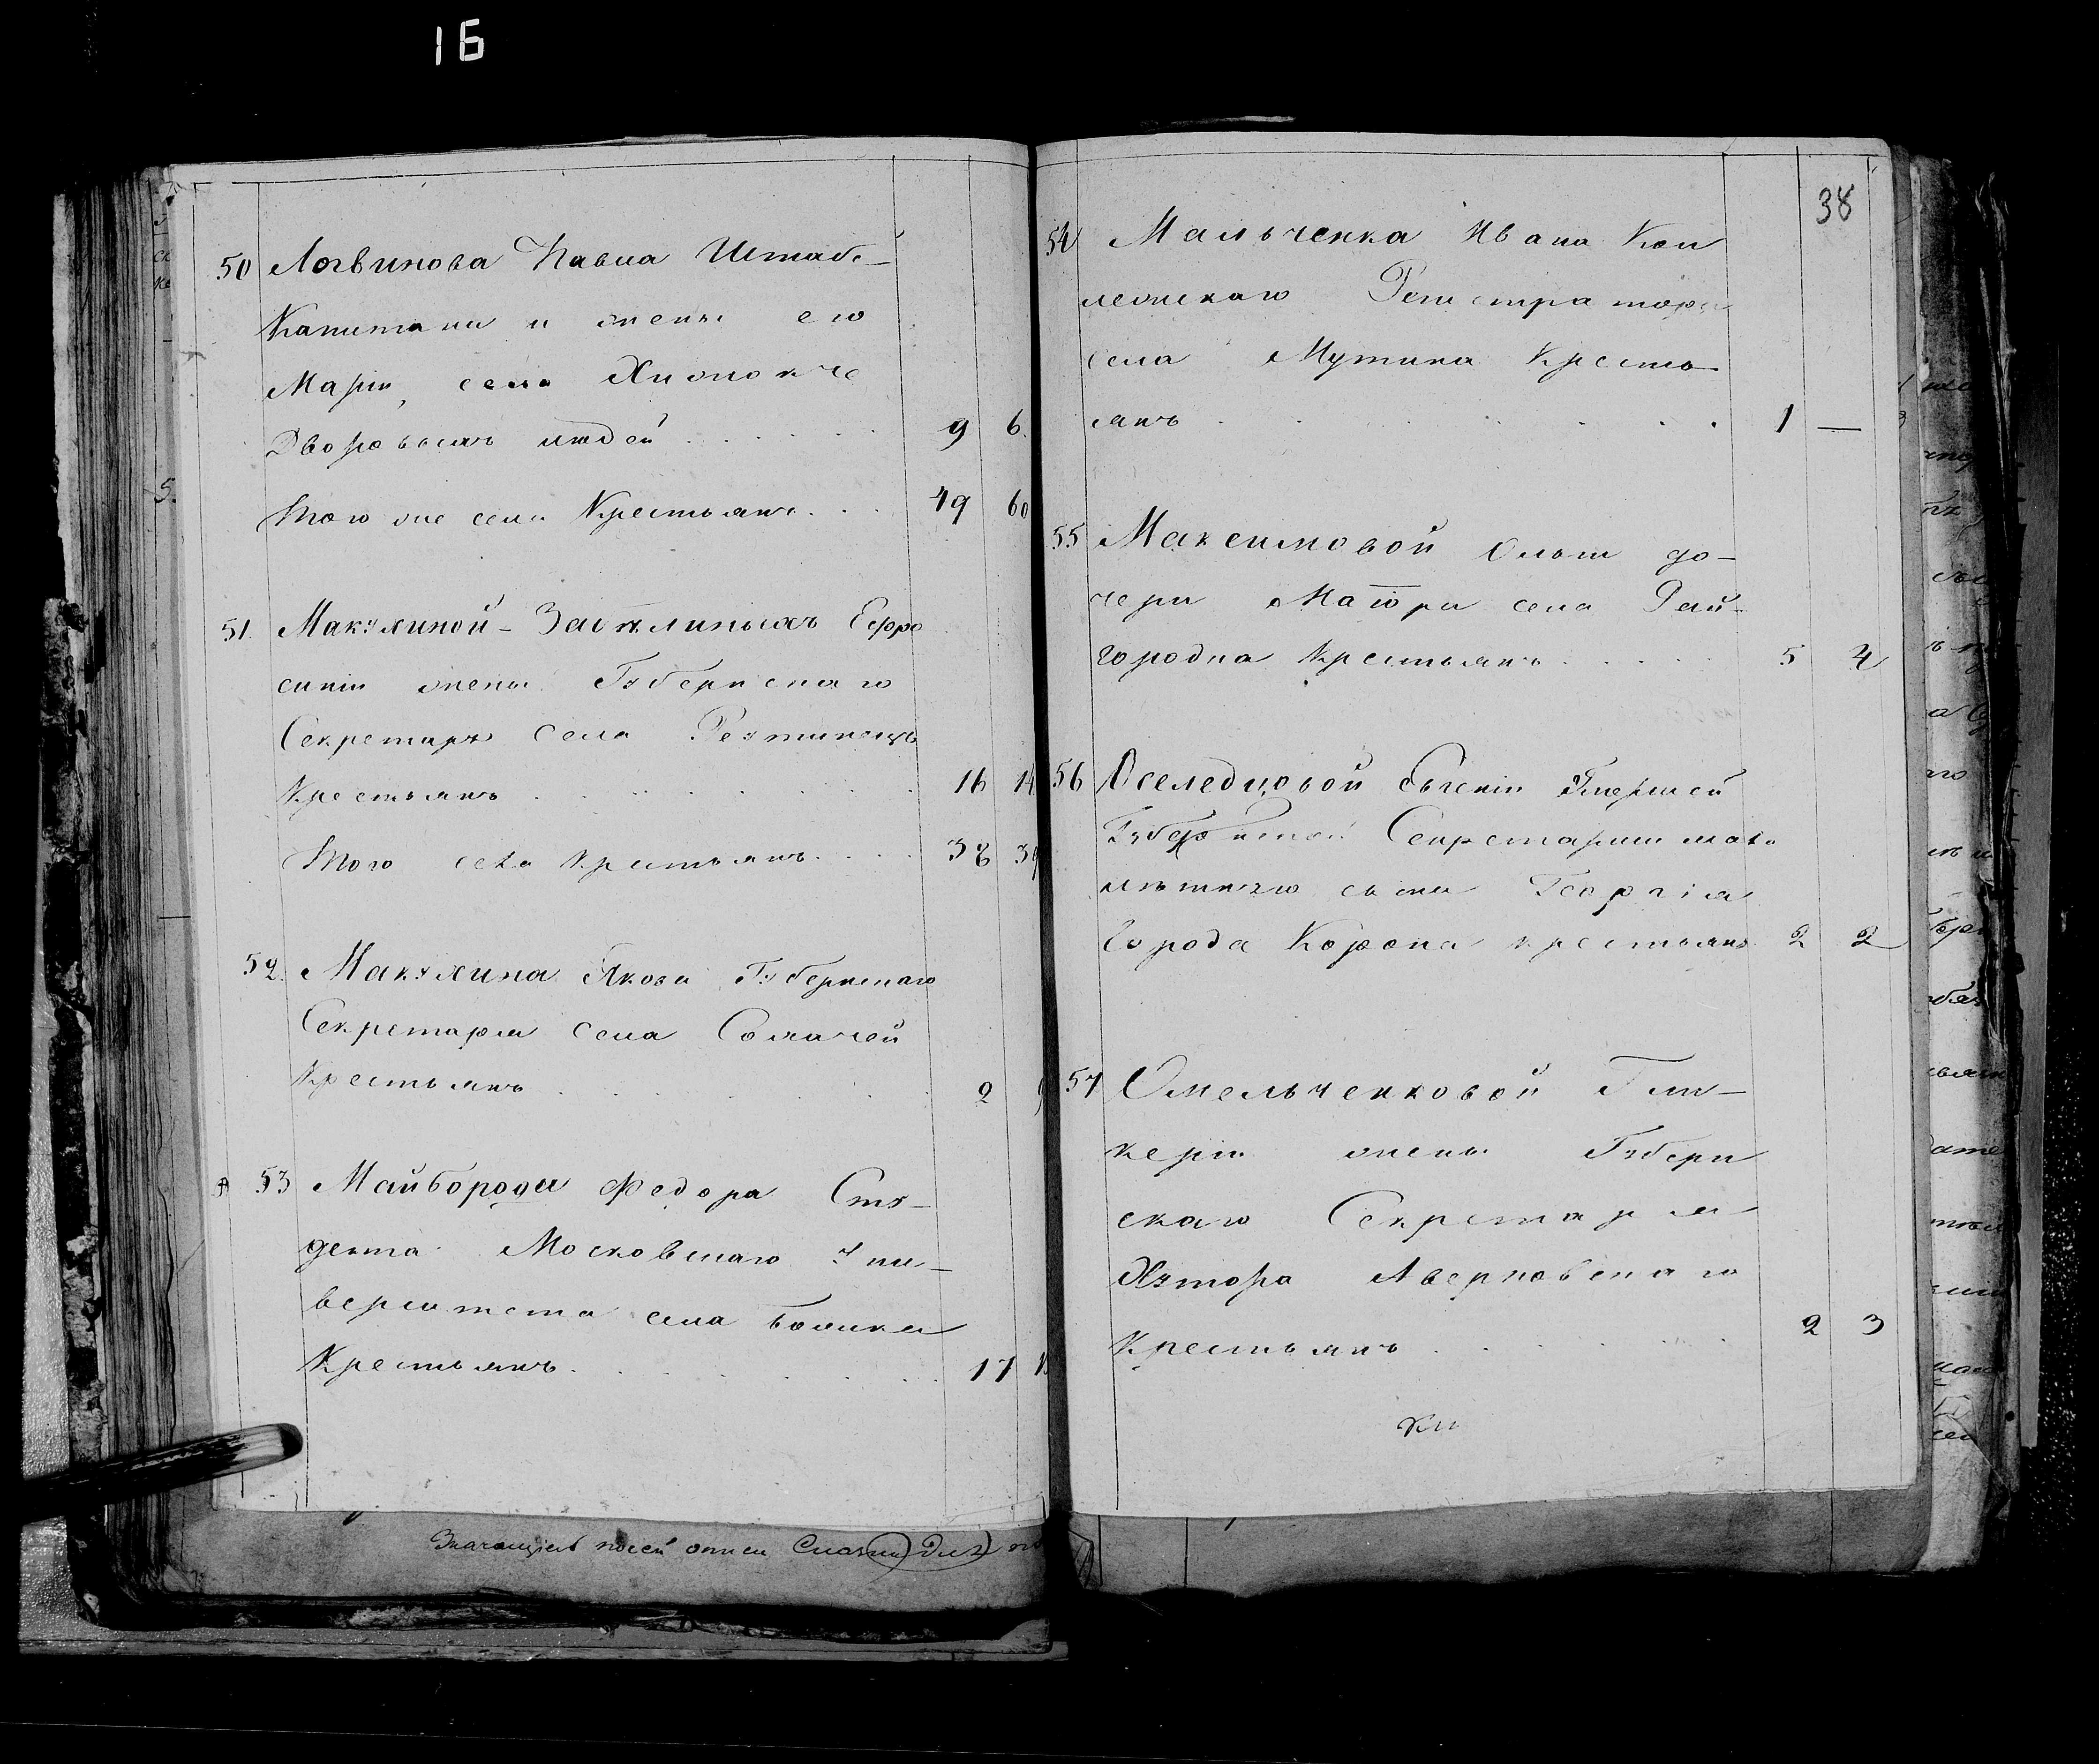 16
50 Логвинова Павла Штабс-
Капитана и жены его
Маріи, села
Дворовыхъ людей . . . . . . 9 6
Того же села Крестьянъ . . . 49 60
51. Макухиной-Заѣлиныхъ Ефро
синіи жены Губернскаго
Секретаря Села Реутинецъ
Крестьянъ . . . . . . . . 16 14
Того села Крестьянъ . . . . 38 39
52. Макухина Якова Губернскаго
Секретаря Села Собичей
Крестьянъ . . . . . . 2
53 Майбороды Федора Сту-
дента Московскаго Уни-
верситета села
Крестьянъ . . . . . . . 17
38
54 Мальченка Ивана Кол
лежскаго Регистратора
села Мутина Кресть-
янъ . . . . . . 1 —
55 Максимовой Ольги до-
чери Маіора села Рай-
городка Крестьянъ . . . . . 5 4
56 Оселедцовой Евгеніи
Губернской Секретарши мало
лѣтняго сына Георгія
Города Коропа крестьянъ 2 2
57 Омельченковой Гли-
керіи жены Губерн
скаго Секретаря
Хутора Аверковскаго
Крестьянъ . . . . . 2 3
Значащіеся по сей описи